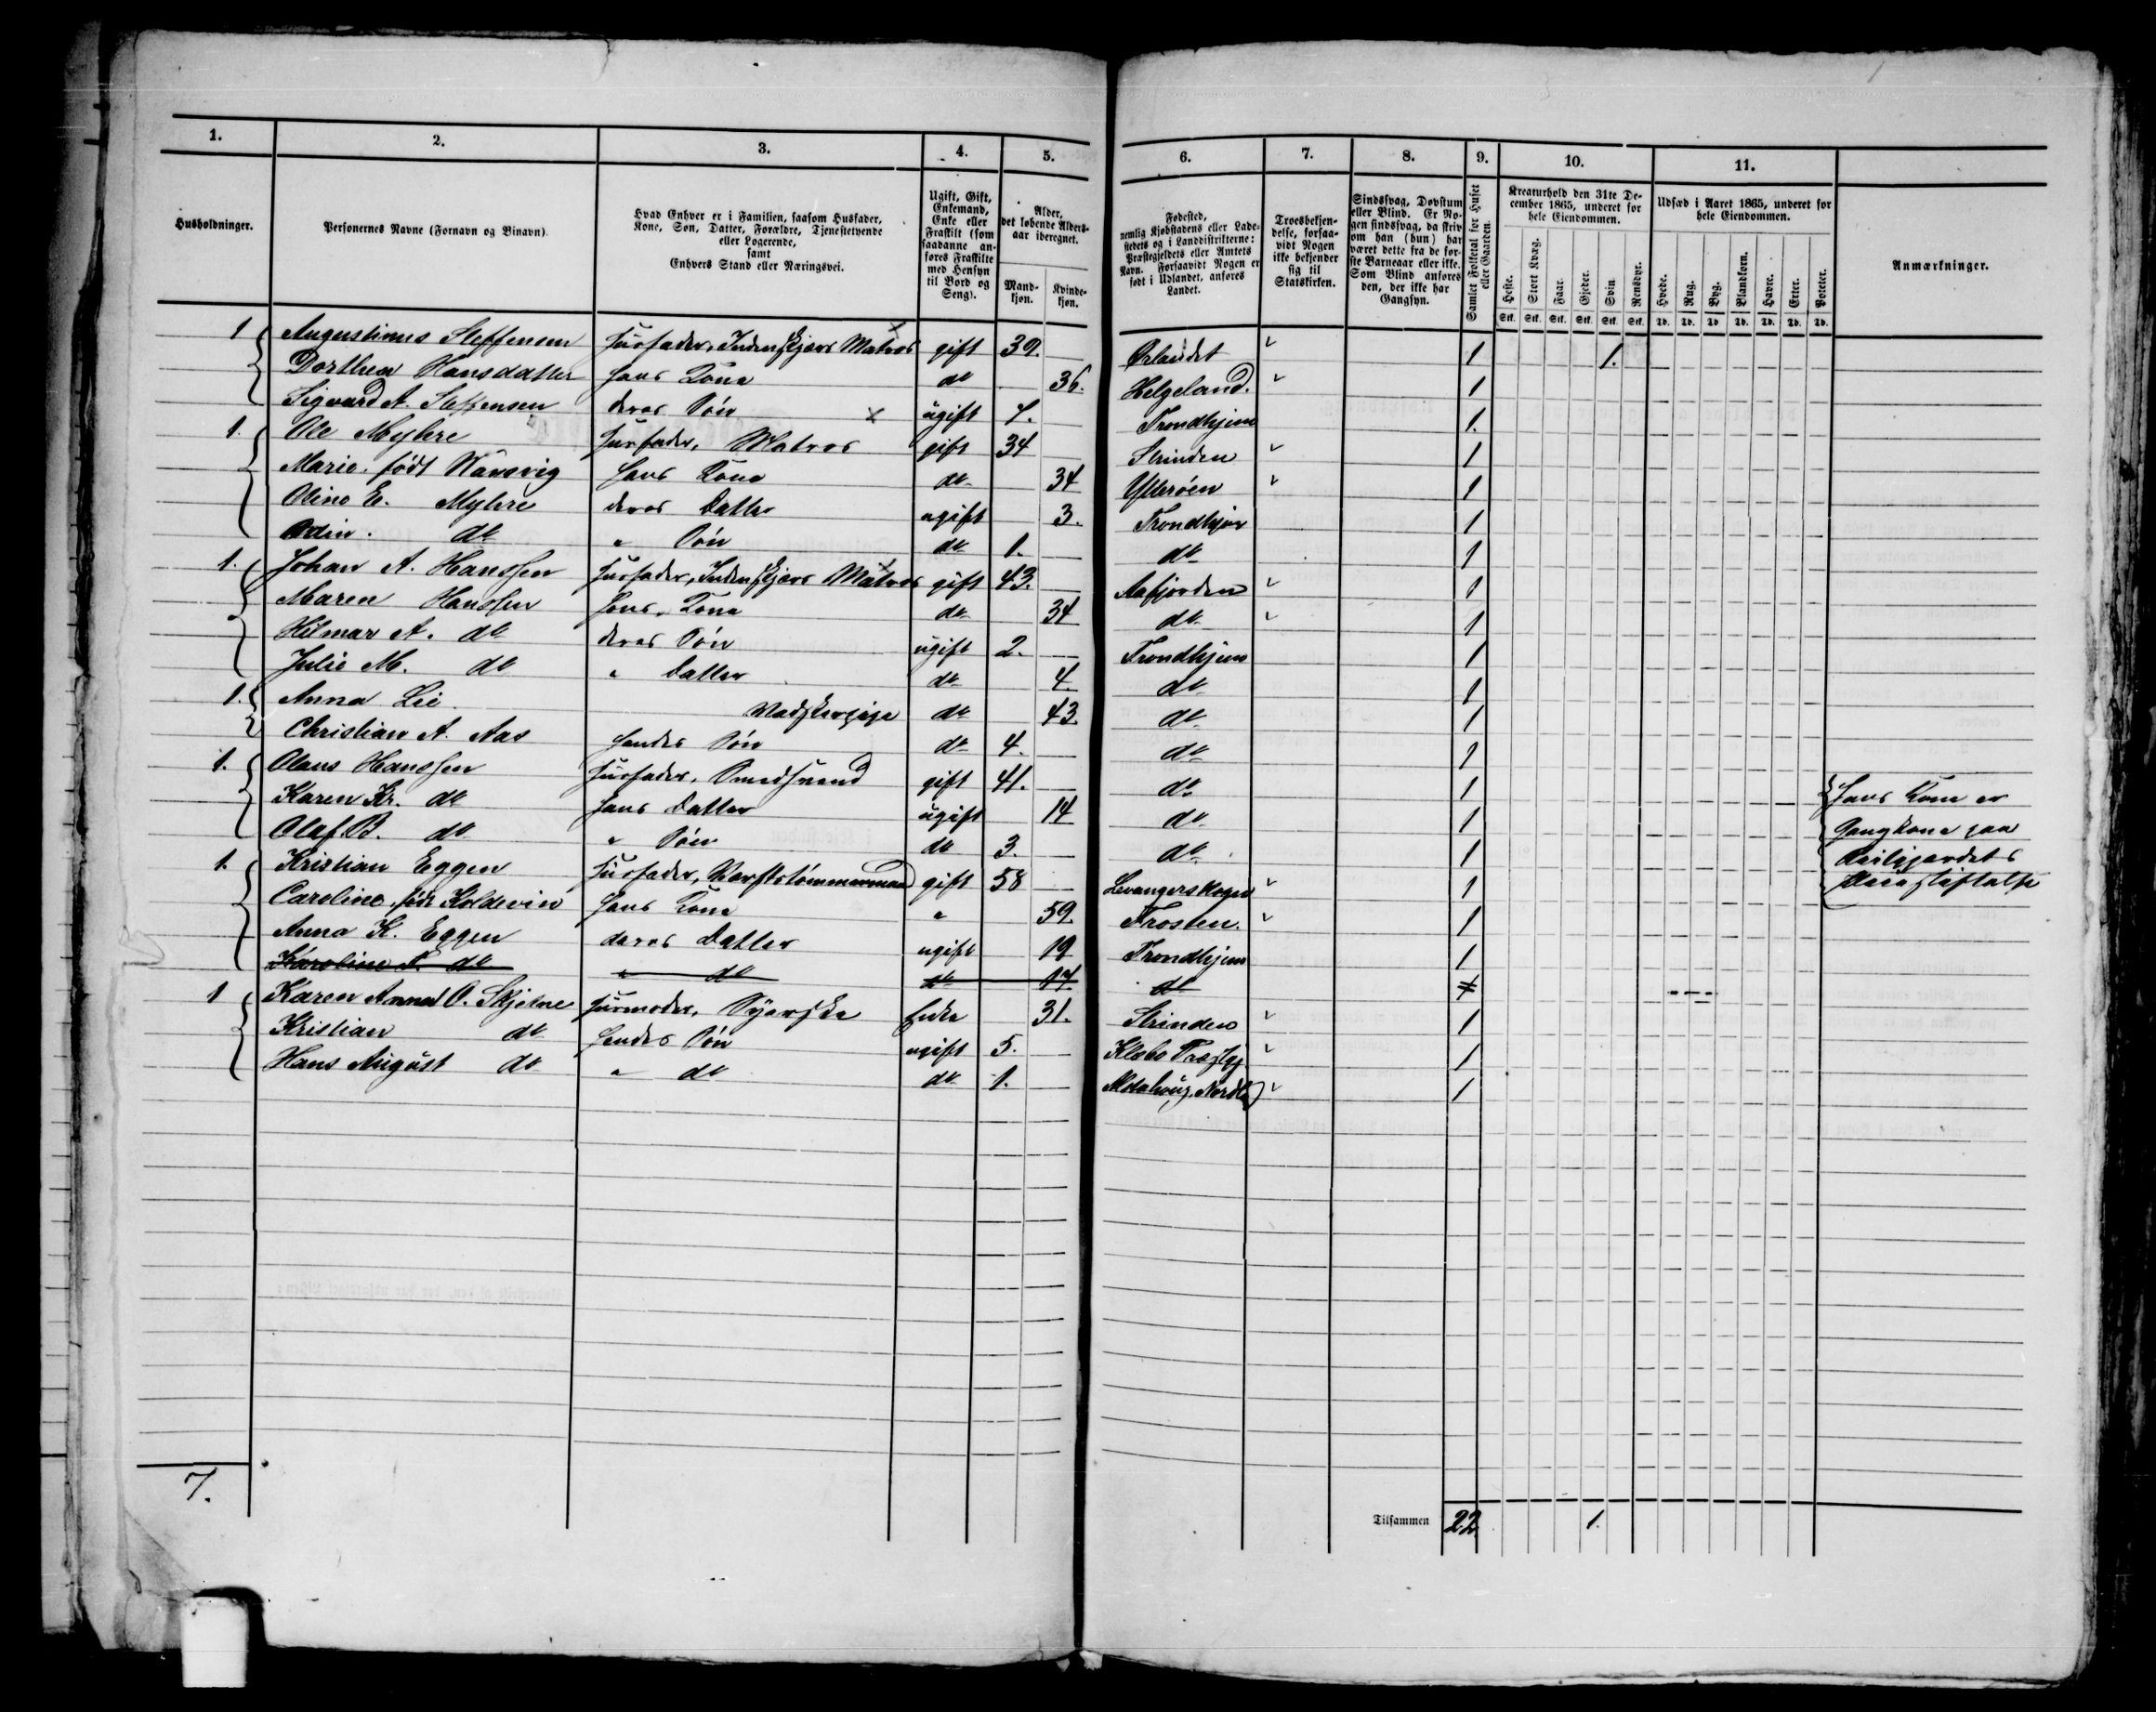 1. 2. 3. 4. 5. 6. 7. 8. 9. 10. 11.
Husholdninger.
Personernes Navne (Fornavn og Binavn).
Hvad Enhver er i Familien, saasom Husfader,
Kone, Søn, Datter, Forældre, Tjenestetyende
eller Logerende,
samt
Enhvers Stand eller Næringsvei.
Ugift, Gift,
Enkemand,
Enke eller
Fraskilt (som
saadanne an-
føres Fraskilte
med Hensyn
til Bord og
Seng).
Alder,
det løbende Alders-
aar iberegnet.
Mand-
kjøn.
Kvinde-
kjøn.
Fødested,
nemlig Kjøbstadens eller Lade-
stedets og i Landdistrikterne:
Præstegjeldets eller Amtets
Navn. Forsaavidt Nogen er
født i Udlandet, anføres
Landet.
Troesbekjen-
delse, forsaa-
vidt Nogen
ikke bekjender
sig til
Statskirken.
Sindssvag, Døvstum
eller Blind. Er No-
gen sindssvag, da skriv
om han (hun) har
været dette fra de før-
ste Barneaar eller ikke.
Som Blind anføres
den, der ikke har
Gangsyn.
Samlet Folketal for Huset
eller Gaarden.
Kreaturhold den 31te De-
cember 1865, underet for
hele Eiendommen.
Heste. Stort Kvæg. Faar. Gjeder. Svin. Rensdyr.
Stk. Stk. Stk. Stk. Stk. Stk.
Udsæd i Aaret 1865, underet for
hele Eiendommen.
Hvede. Rug. Byg. Blandkorn. Havre. Erter. Poteter.
Td. Td. Td. Td. Td. Td. Td.
Anmærkninger.
1 Augustinus Steffensen Husfader, Indenskjærs Matros gift 39. Ørlandet 1 1.
Dorthea Hansdatter hans Kone do 36. Helgeland. 1
Sigvard A. Steffensen deres Søn ugift Trondhjem 1.
1. Ole Myhre Husfader, Matros gift 34 Strinden 1
Marie født hans Kone do 34 Ytterøen 1
Oline E. Myhre deres Datter ugift 3. Trondhjem 1
Odin. do " Søn do 1. do 1
1. Johan A. Hanssen Husfader, Indenskjærs Matros gift 43. Aafjorden 1
Maren Hanssen hans Kone do 34 do 1
Hilmar A. do deres Søn ugift 2. Trondhjem 1
Julie M. do " Datter do 4. do 1
1. Anna Lie. Vadskerpige do 43 do 1
Christian A. Aas hendes Søn do 4. do 1
1. Olaus Hanssen Husfader, Smedsvend gift 41. do 1 Hans Kone er
Karen Kr. do hans Datter ugift 14 do 1 Gangkone paa
Olaf B. do " Søn do 3. do 1
1. Kristian Eggen Husfader, Værftstømmermand gift 58 Levangerskogn 1
Caroline, født Koldevin hans Kone " 59. Frosten. 1
Anna K. Eggen deres Datter ugift 19 Trondhjem 1
Karoline do " do do 14 do
1 Karen Anna O. Skjelne Husmoder, Syerske Enke 31. Strinden 1
Kristian do hendes Søn ugift 5. Klæbo Præstgj 1
Hans August do " do do 1. Alstahoug, Nordl. 1
7.
Tilsammen 22. 1.